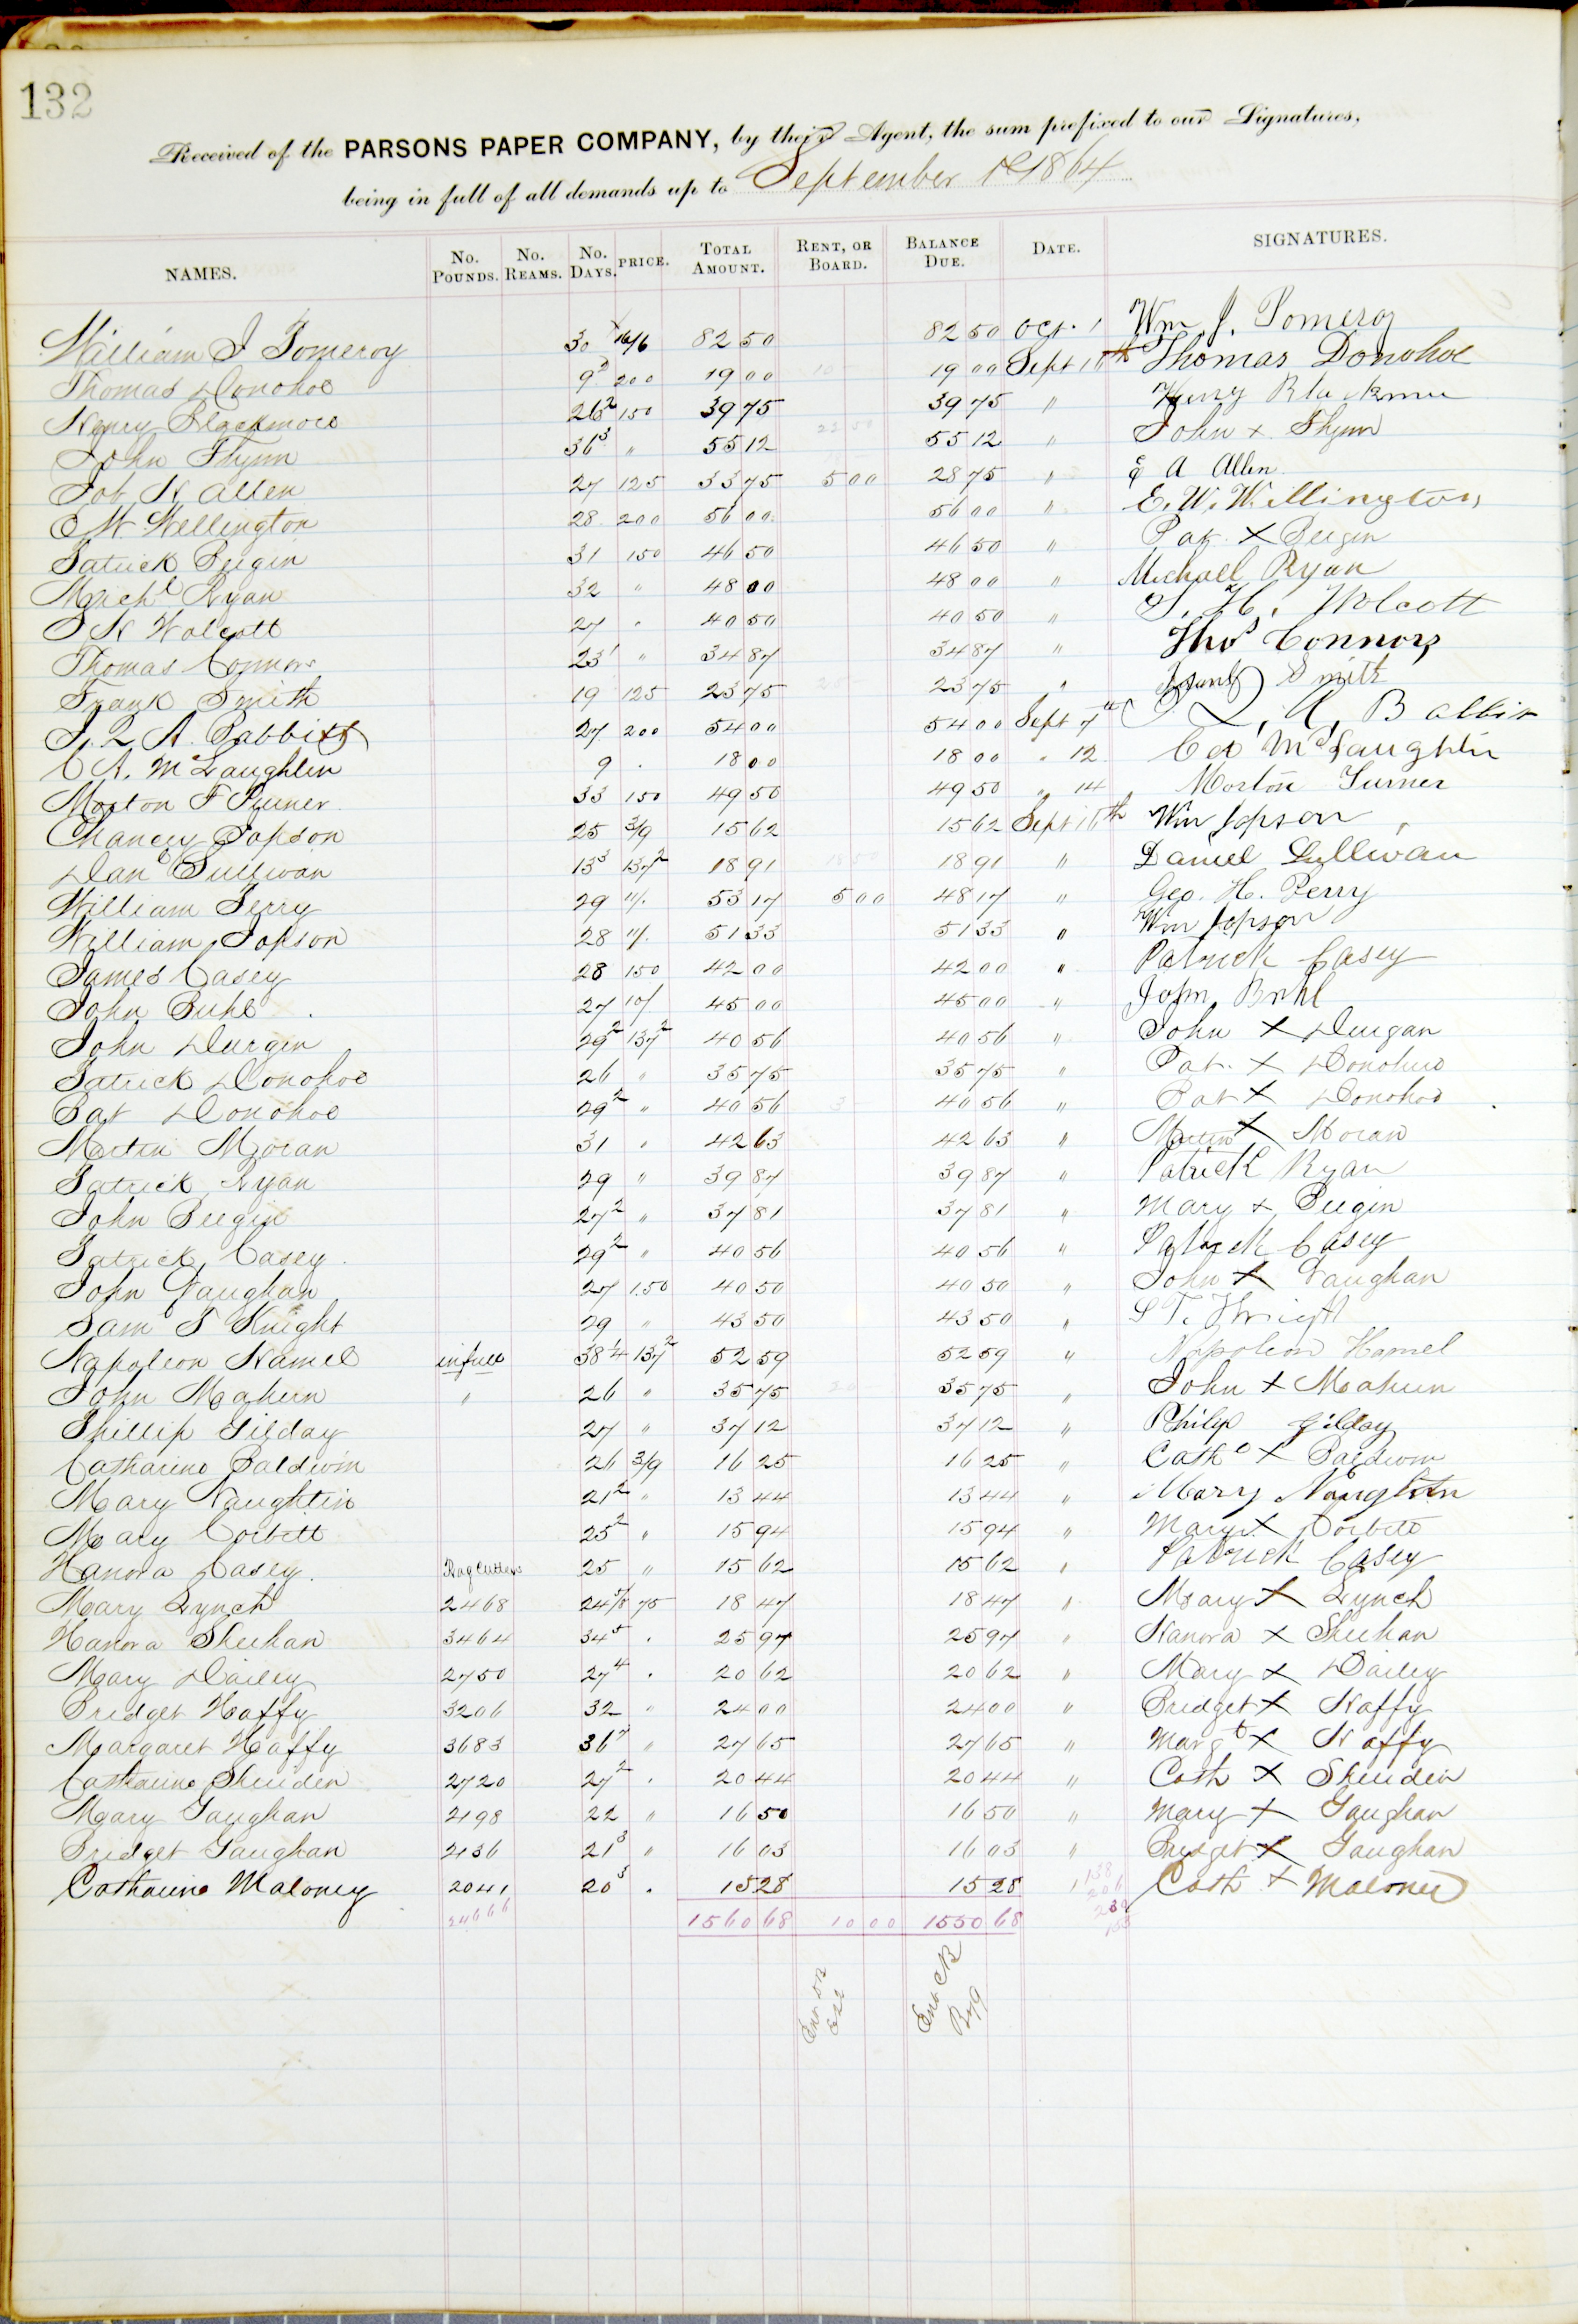 132
Received of the PARSONS PAPER COMPANY, by their Agent, the sum prefixed to our Signatures,
being in full of all demands up to September 1st 1864
NAMES. No. Pounds. No. Reams. No. Days. PRICE. Total Amount. Rent, or Board. Balance Due. Date. SIGNATURES.
William J Pomeroy 30 16/6 82 50 82 50 Oct. 1 Wm J. Pomeroy
Thomas Donohoe 9 2 200 19 00 19 00 Sept 16th Thomas Donohoe
Henry Blackmore 26 2 150 39 75 39 75 " Henry Blackmer
John Flynn 36 3 " 55 12 55 12 " John x Flynn
Job H Allen 27 125 33 75 5 00 28 75 " E A Allen
E W Wellington 28 200 56 00 56 00 " E. W. Willington
Patrick Beegin 31 150 46 50 46 50 " Pat. X Beegin
Michl Ryan 32 " 48 00 48 00 " Michael Ryan
S H Wolcott 27 " 40 50 40 50 " S. H. Wolcott
Thomas Connors 23 1 " 34 87 34 87 " Thos Connors
Frank Smith 19 125 23 75 23 75 " Frank Smith
J. L. A. Babbitt 27 200 54 00 54 00 Sept 7th J. L. A. Babbitt
C A. McLaughlin 9 " 18 00 18 00 " 12 C A McLaughlin
Morton F Turner 33 150 49 50 49 50 " 14 Morton Turner
Chancey Jopson 25 3/9 15 62 15 62 Sept 16th Wm Jopson
Danl Sullivan 13 3 137 2 18 91 18 91 " Daniel Sullivan
William Perry 29 11/. 53 17 5 00 48 17 " Geo. H. Perry
William Jopson 28 11/. 51 33 51 33 " Wm Jopson
James Casey 28 150 42 00 42 00 " Patrick Casey
John Buhl 27 10/ 45 00 45 00 " John Buhl
John Durgin 29 2 137 2 40 56 40 56 " John X Durgan
Patrick Donohoe 26 " 35 75 35 75 " Pat. X Donohue
Pat Donohoe 29 2 " 40 56 40 56 " Pat X Donohoe
Martin Moran 31 " 42 63 42 63 " Martin X Moran
Patrick Ryan 29 " 39 87 39 87 " Patrick Ryan
John Beegin 27 2 " 37 81 37 81 " Mary x Beegin
Patrick Casey 29 2 " 40 56 40 56 " Patrick Casey
John Vaughan 27 1.50 40 50 40 50 " John X Vaughan
Saml T Knight 29 " 43 50 43 50 " S T. Knight
Napoleon Hamel in full 38 1/4 137 2 52 59 52 59 " Napoleon Hamel
John Mahern " 26 " 35 75 35 75 " John X Mahern
Phillip Gilday 27 " 37 12 37 12 " Philip Gilday
Catharine Baldwin 26 3/9 16 25 16 25 " Cath X Baldwin
Mary Naughtin 21 2 " 13 44 13 44 " Mary Naughtin
Mary Corbett 25 2 " 15 94 15 94 " Mary X Corbett
Hanora Casey Rag Cutters 25 " 15 62 15 62 " Patrick Casey
Mary Lynch 2468 24 5/8 75 18 47 18 47 " Mary X Lynch
Hanora Sheehan 3464 34 5 " 25 97 25 97 " Hanora X Sheehan
Mary Dailey 2750 27 4 " 20 62 20 62 " Mary X Dailey
Bridget Haffy 3206 32 " 24 00 24 00 " Bridget X Haffy
Margaret Haffy 3683 36 7 " 27 65 27 65 " Margt X Haffy
Catharine Sheriden 2720 27 2 " 20 44 20 44 " Cath X Sheriden
Mary Gaughan 2198 22 " 16 50 16 50 " Mary X Gaughan
Bridget Gaughan 2136 21 3 " 16 03 16 03 " Bridget X Gaughan
Catharine Maloney 2041 20 3 " 15 28 15 28 " Cath X Maloney
24666 1560 68 10 00 1550 68